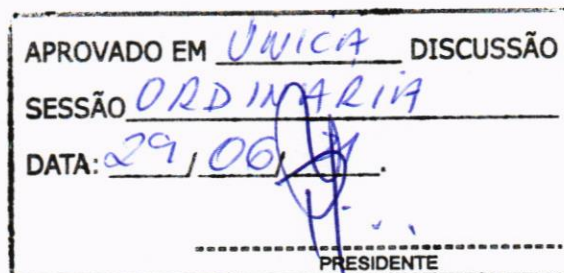 APROVADO EM UNICA DISCUSSÃO
SESSÃO ORDINARIA
DATA: 29 / 06 / .
PRESIDENTE